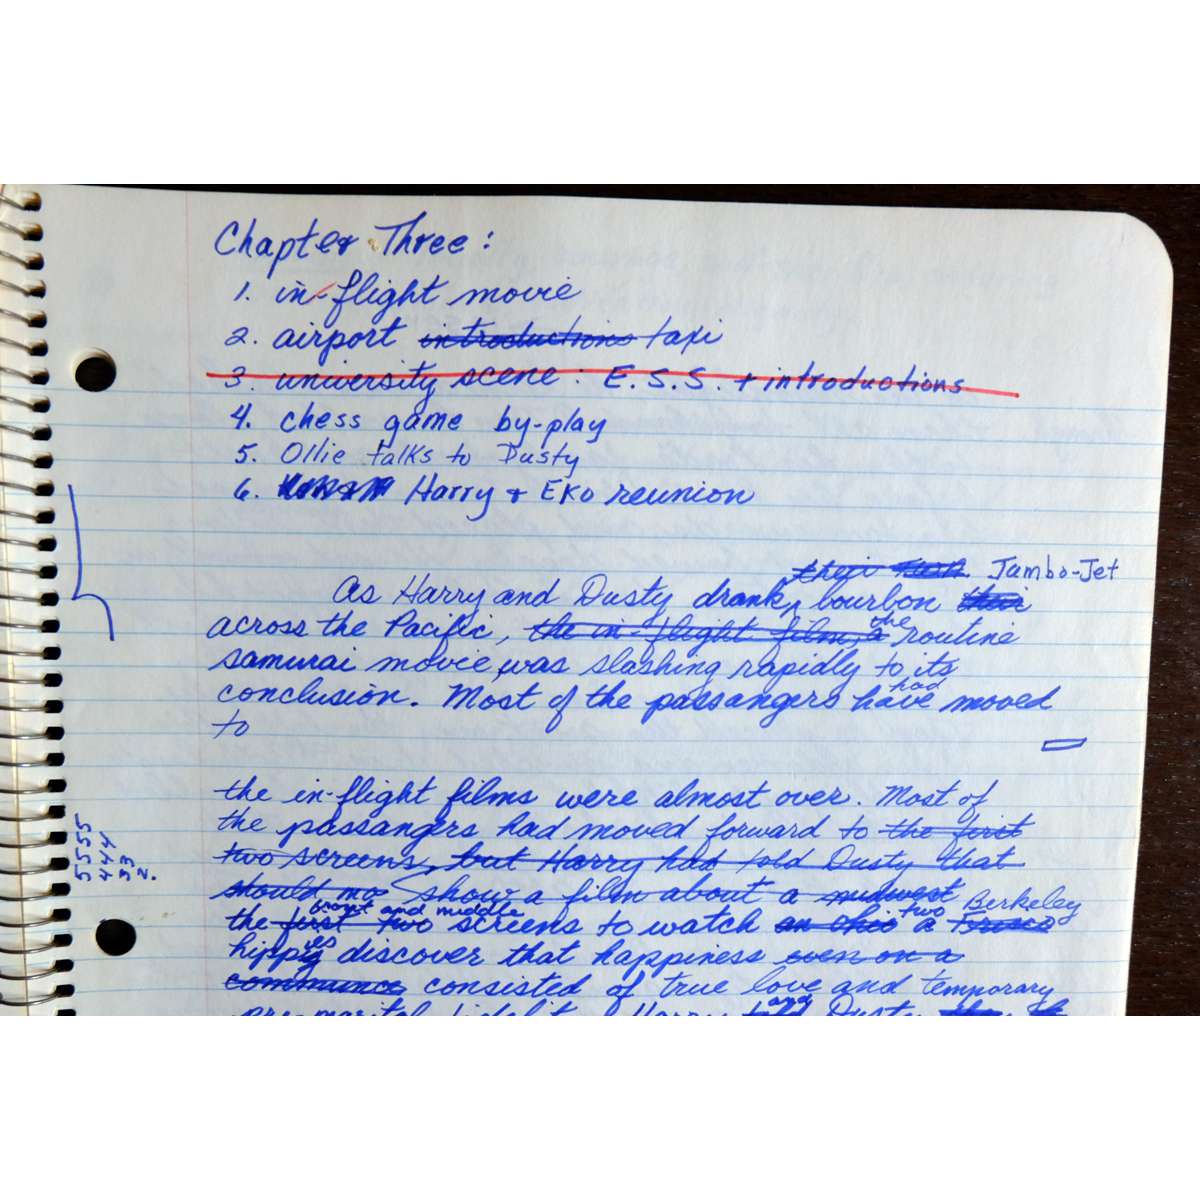 Chapter Three:
1. in-flight movie
2. airport introductions taxi
3. university scene: E.S.S. + introductions
4. chess game by-play
5. Ollie talks to Dusty
6. Harry + EKO reunion
their Jambo-Jet
As Harry and Dusty drank, bourbon their
the
across the Pacific, the in-flight film, a routine
samurai movie was slashing rapidly to its
had
conclusion. Most of the passangers have moved
to
the in-flight films were almost over. Most of
the passangers had moved forward to the first
two screens, but Harry had told Dusty that
should mo show a film about a midwest Berkeley
front and middle two
the first two screens to watch an ohio a Frisco
es
hippy discover that happiness even on a
commune consisted of true love and temporary
and
pre-marital Harry told Dusty
5555
444
33
2.